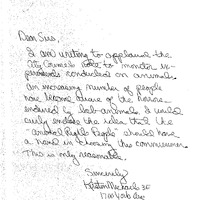 Dear Sirs,
I am writing to applaud the
City Council's vote to monitor ex-
periments conducted on animals.
An increasing number of people
have become aware of the horrors
endured by lab-animals. I would
only endorse the idea that the
"animal Rights People" should have
a hand in choosing the commissioner.
This is only reasonable.
Sincerely
Kristin Michaels